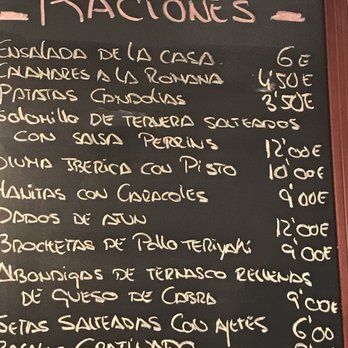 RACIONES
ENSALADA DE LA CASA 6€
CALAMARES A LA ROMANA 4'50€
PATATAS CONDOLIAS 3'50€
SOLOMILLO DE TERNERA SALTEADOS
CON SALSA PERRINS 12'00€
PLUMA IBERICA CON PISTO 10'00€
MANITAS CON CARACOLES 9'00€
DADOS DE ATUN 12'00€
BROCHETAS DE POLLO TERIYAKI 9'00€
ALBONDIGAS DE TERNASCO RELLENAS
DE QUESO DE CABRA 9'00€
SETAS SALTEADAS CON AJETES 6'00
GRATINADO